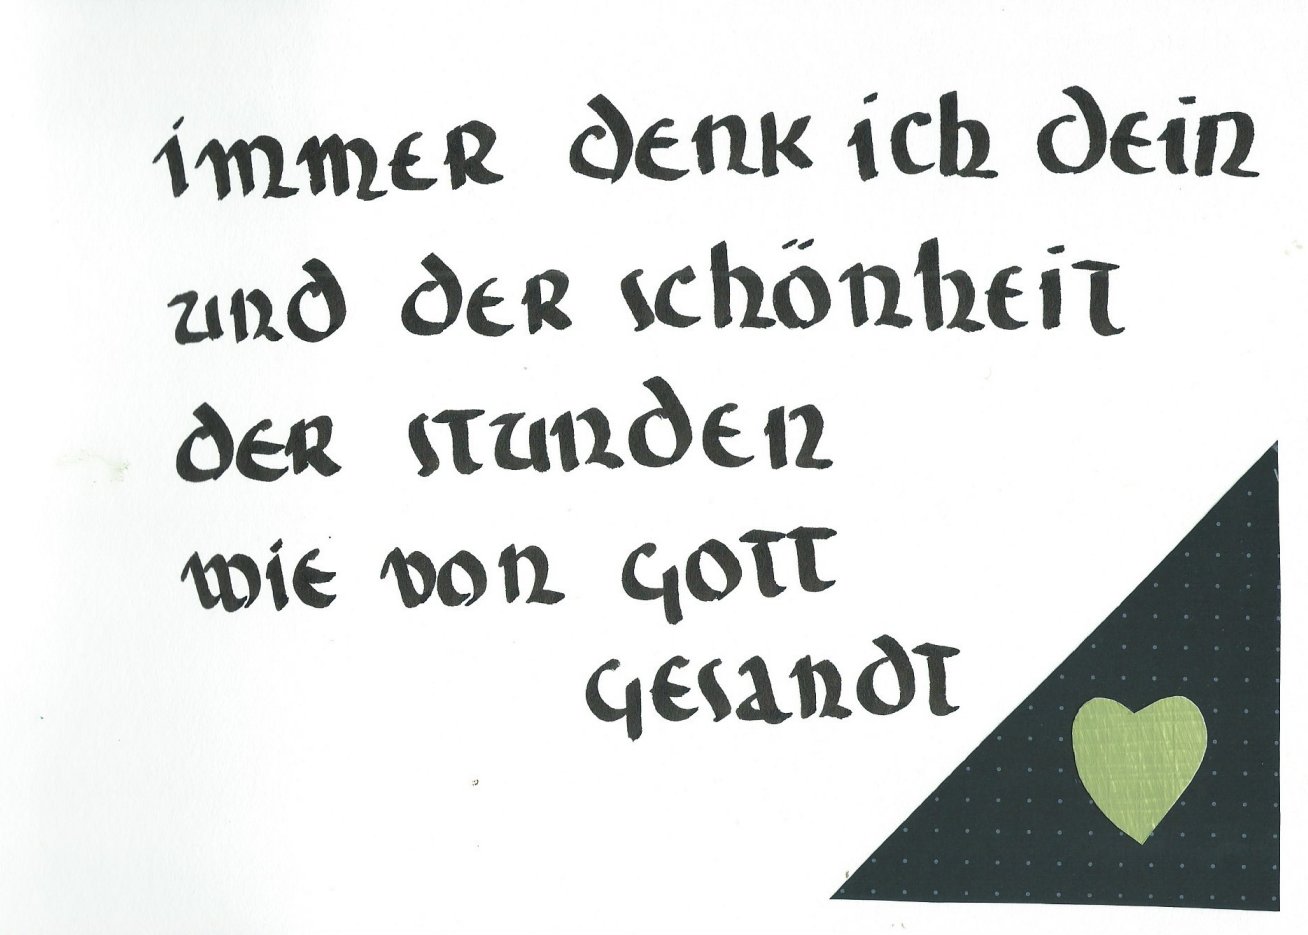 immer denk ich dein
und der schönheit
der stunden
wie von gott
gesandt